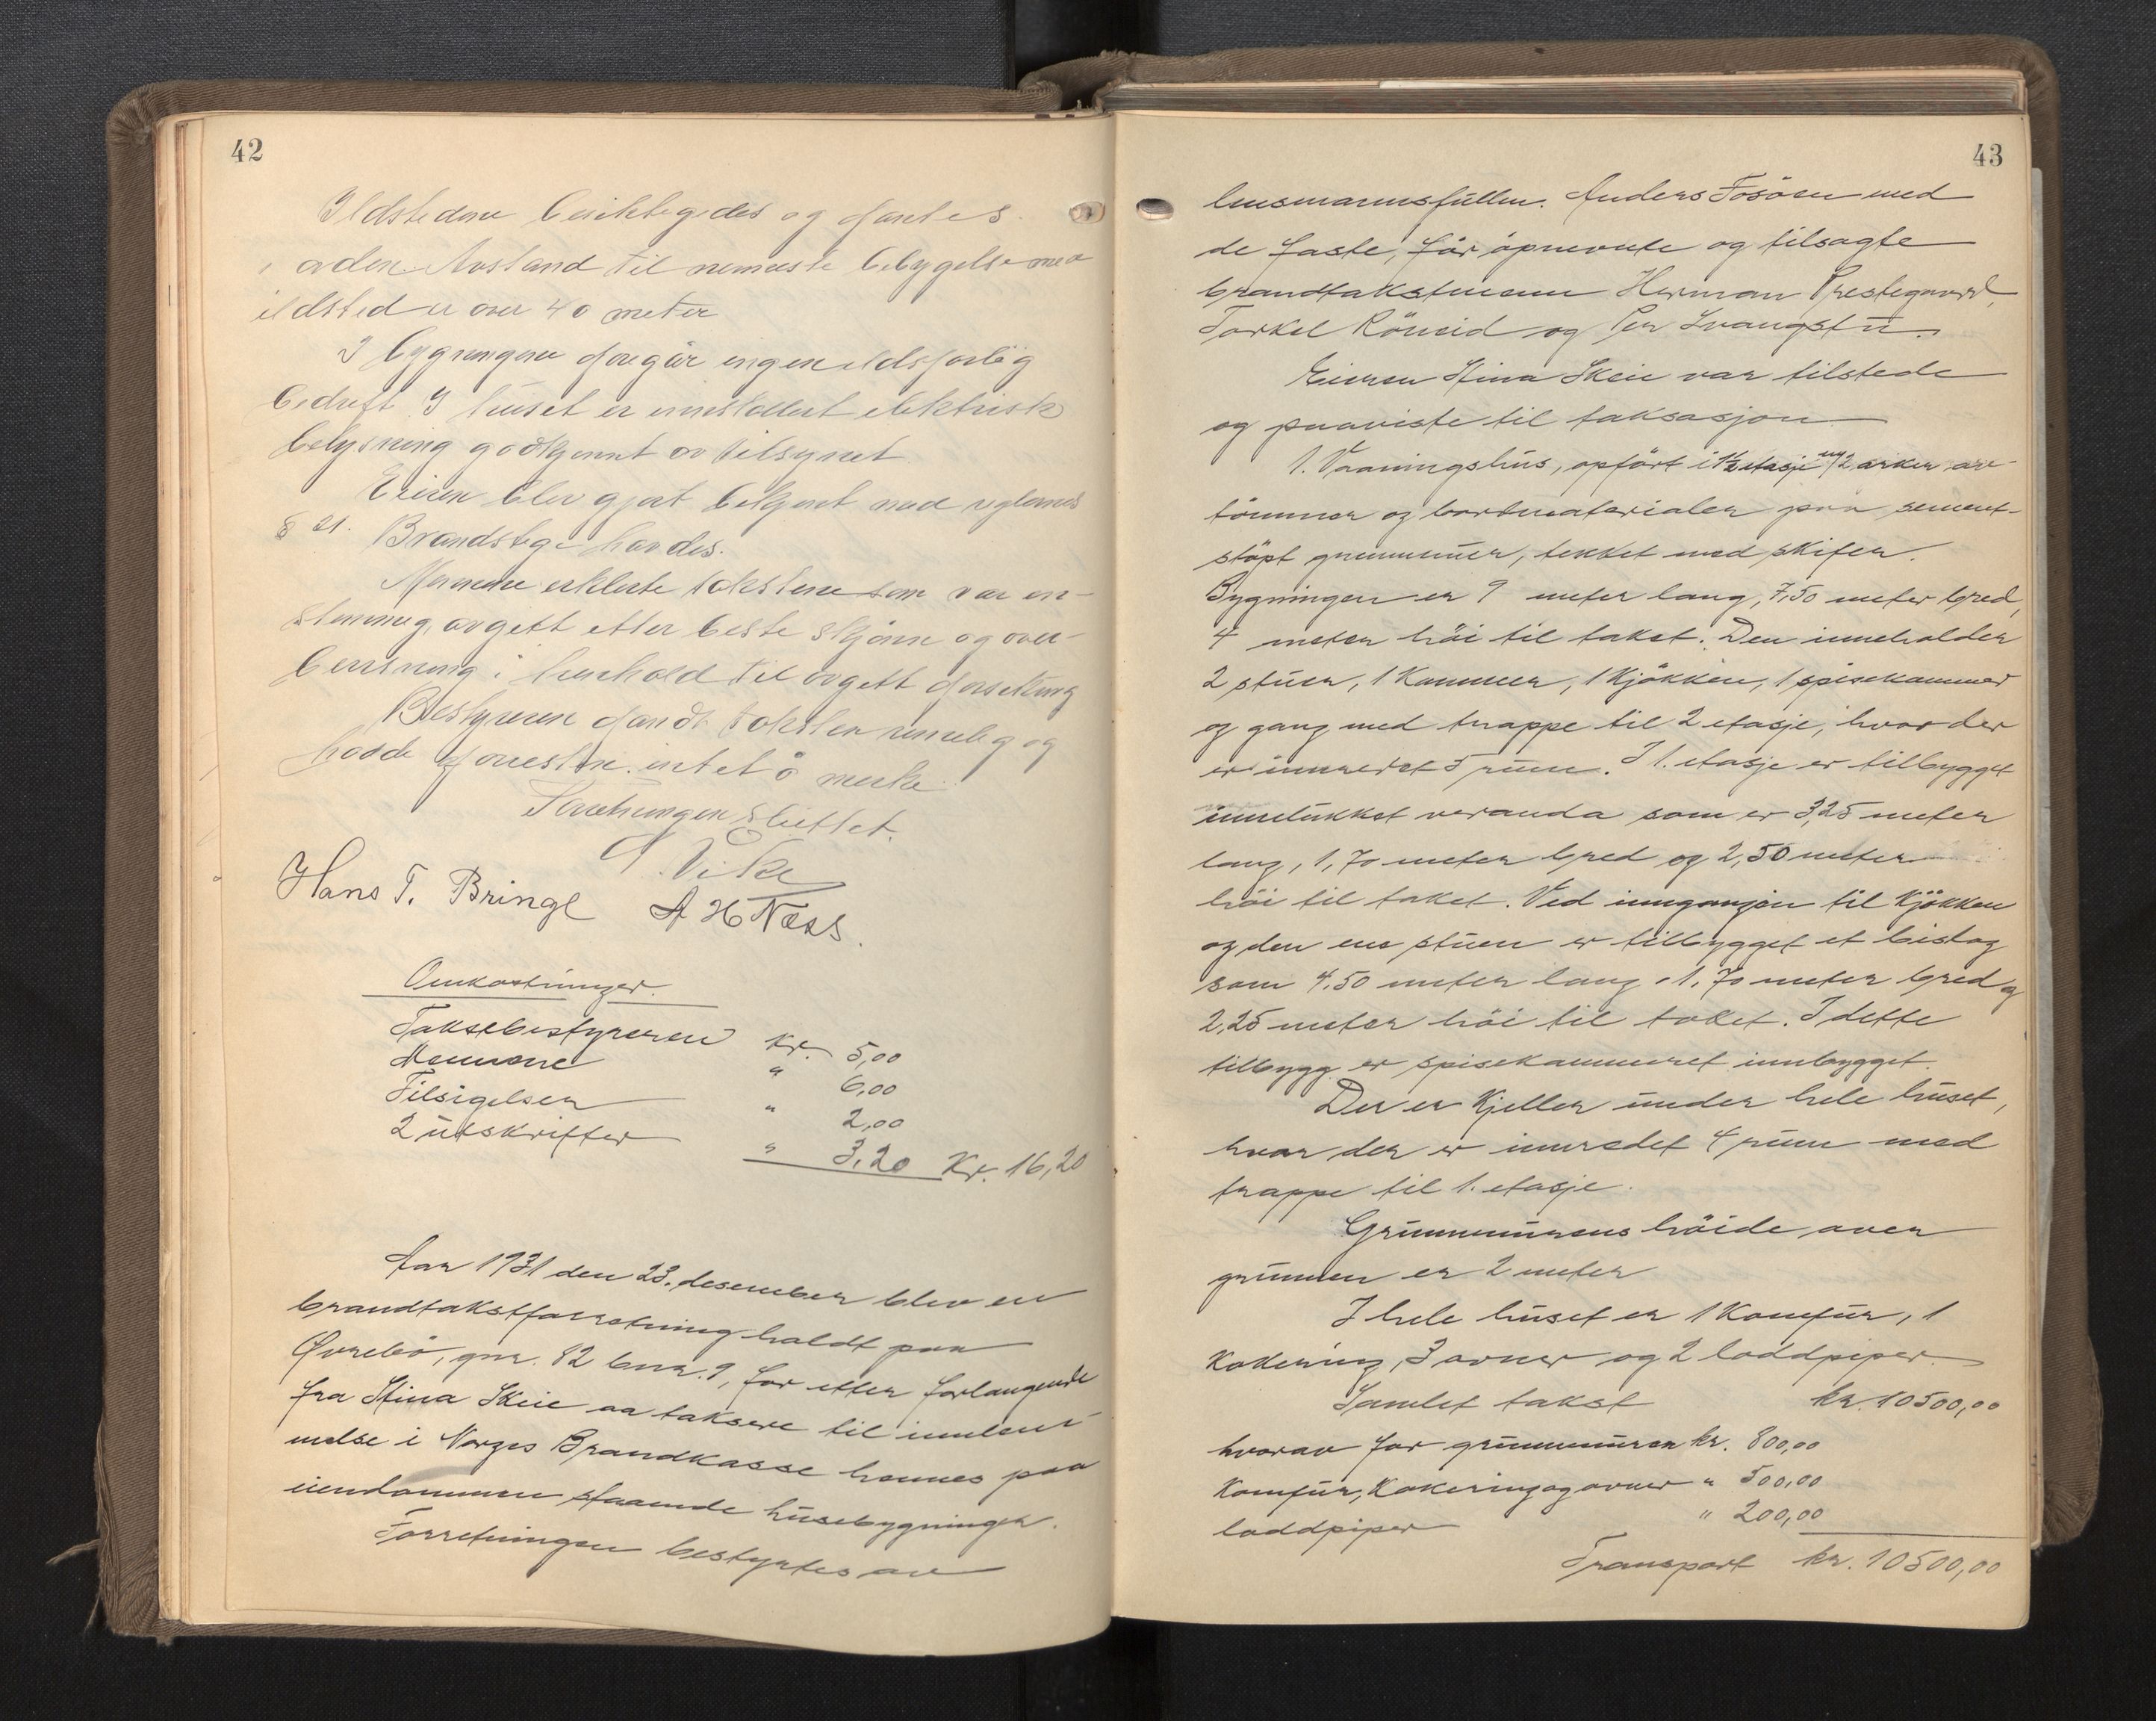 42
Ildstedene besiktigedes og fantes
i orden. Avstand til nemeste bebygelse med
ildsted er over 40 meter
I bygningene foregår ingen ildsfarlig
bedrift I huset er innstallert elektrisk
belysning godkjennt av tilsynet.
Eieren blev gjort bekjent med reglernes
§ 21. Brandstige havdes.
Mennene erklerte takstene som var en-
stemmig, avgett etter beste skjönn og over-
bevisning i henhold til avgett forsikring
Bestyreren fandt taksten rimelig og
hadde forresten intet å merke.
Forretningen sluttet.
Vike
Hans T. Bringe A H Næss.
Omkostninger.
Takstbestyreren Kr. 5,00
Mennene " 6,00
Tilsigelsen " 2,00
2 utskrifter " 3,20 Kr. 16,20
Aar 1931 den 23. desember blev en
brandtakstforretning holdt paa
Øvrebö, gnr. 82 bnr. 9, for efter forlangende
fra Stina Skeie aa taksere til innlem-
melse i Norges Brandkasse hennes paa
eiendommen staaende husebygninger.
Forretningen bestyrtes av
43
lensmannsfullm. Anders Fosöen med
de faste, för opnevnte og tilsagte
brandtakstmenn Herman Prestegaard,
Torkel Röneid og Per
Eieren Stina Skeie var tilstede
og paaviste til taksasjon
1. Vaaningshus, opfört i 1½ etasje m/2 arker, av
tömmer og bordmaterialer paa sement-
stöpt grunnmur, tekket med skifer.
Bygningen er 9 meter lang, 7,50 meter bred,
4 meter höi til taket. Den inneholder
2 stuer, 1 Kammer, 1 Kjökken, 1 spisekammer
og gang med trappe til 2 etasje, hvor der
er innredet 5 rum. I 1. etasje er tilbygget
innelukket veranda som er 3,25 meter
lang, 1,70 meter bred og 2,50 meter
höi til taket. Ved inngangen til Kjökken
og den ene stuen er tilbygget et bislag
som 4,50 meter lang, 1,70 meter bred og
2,25 meter höi til taket. I dette
tilbygg er spisekammeret innbygget.
Der er Kjeller under hele huset,
hvor der er innredet 4 rum med
trappe til 1. etasje.
Grunnmurens höide over
grunnen er 2 meter
I hele huset er 1 Komfur, 1
Kokering, 3 ovner og 2 loddpiper.
Samlet takst kr. 10500,00
hvorav for grunnmuren kr. 800,00
Komfur, Kokering og ovner " 500,00
loddpiper " 200,00
Transport kr. 10500,00